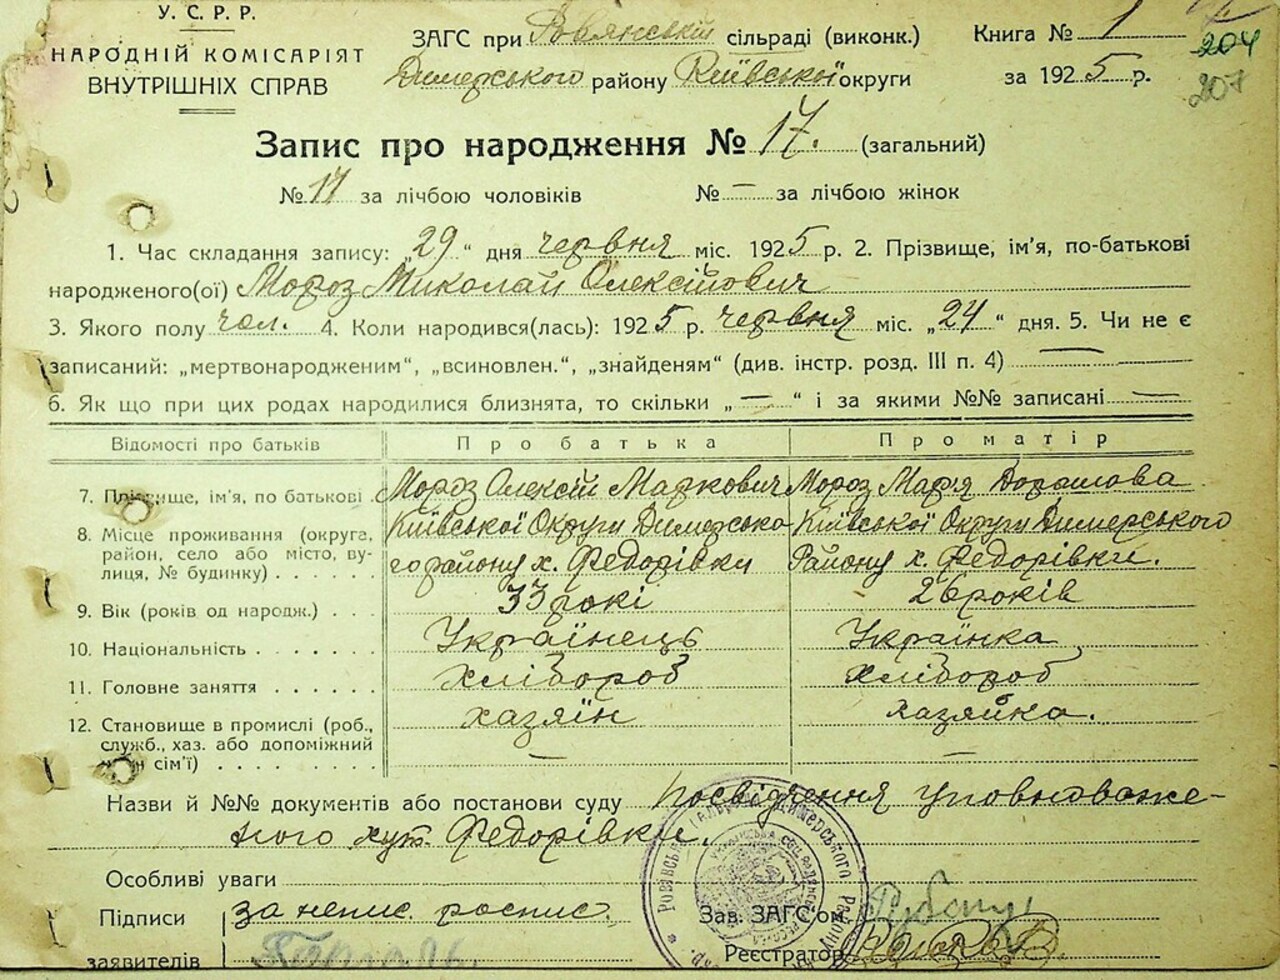 У. С. Р. Р.
НАРОДНІЙ КОМІСАРІЯТ
ВНУТРІШНІХ СПРАВ
ЗАГС при Ровянській сільраді (виконк.)
Димерського району Київської округи
Книга № 1
за 1925 р.
204
207
Запис про народження № 17. (загальний)
№ 17 за лічбою чоловіків № — за лічбою жінок
1. Час складання запису: „29“ дня червня міс. 1925 р. 2. Прізвище, ім'я, по-батькові
народженого(ої) Мороз Миколай Олексійович
3. Якого полу чол. 4. Коли народився(лась): 1925 р. червня міс. „24“ дня. 5. Чи не є
записаний: „мертвонародженим“, „всиновлен.“, „знайденям“ (див. інстр. розд. III п. 4) —
6. Як що при цих родах народилися близнята, то скільки „—“ і за якими №№ записані —
Відомості про батьків Про батька Про матір
7. Прізвище, ім'я, по батькові Мороз Олексій Маркович Мороз Марія Дорашова
8. Місце проживання (округа, Київської Округи Димерсько Київської Округи Димерського
район, село або місто, ву- го району х. Федорівки Району х. Федорівки.
лиця, № будинку)
9. Вік (років од народж.) 33 рокі 26 років
10. Національність Українець Українка
11. Головне заняття Хлібороб Хлібороб
12. Становище в промислі (роб., хазяїн хазяйка.
служб., хаз. або допоміжний
член сім'ї) — —
Назви й №№ документів або постанови суду Посвідчення уповноваже-
ного хут. Федорівки.
Особливі уваги
Підписи за непис. роспис.
заявителів
Зав. ЗАГС'ом
Реєстратор